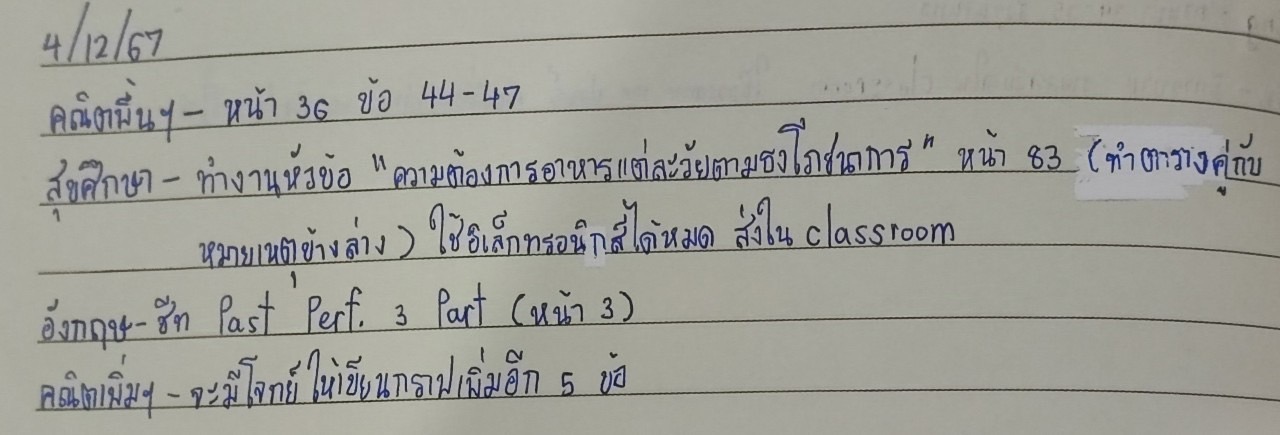 4/12/67
คณิตพื้นฯ - หน้า 36 ข้อ 44-47
สุขศึกษา - ทำงานหัวข้อ "ความต้องการอาหารแต่ละวัยตามธงโภชนาการ" หน้า 83 (ทำตารางคู่กับ
หมายเหตุข้างล่าง) ใช้อิเล็กทรอนิกส์ได้หมด ส่งใน classroom
อังกฤษ - ชีท Past Perf. 3 Part (หน้า 3)
คณิตเพิ่มฯ - จะมีโจทย์ให้เขียนกราฟเพิ่มอีก 5 ข้อ